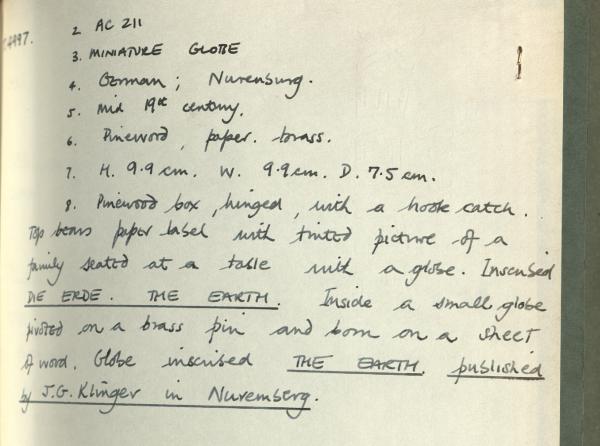 4997.
2. AC 211
3. MINIATURE GLOBE
4. German; Nurenburg.
5. Mid 19th century.
6. Pinewood, paper. brass.
7. H. 9.9 cm. W. 9.9 cm. D. 7.5 cm.
8. Pinewood box, hinged, with a hook catch.
Top bears paper label with tinted picture of a
family seated at a table with a globe. Inscribed
DIE ERDE. THE EARTH. Inside a small globe
pivoted on a brass pin and born on a sheet
of wood. Globe inscribed THE EARTH. published
by J.G. Klinger in Nuremberg.